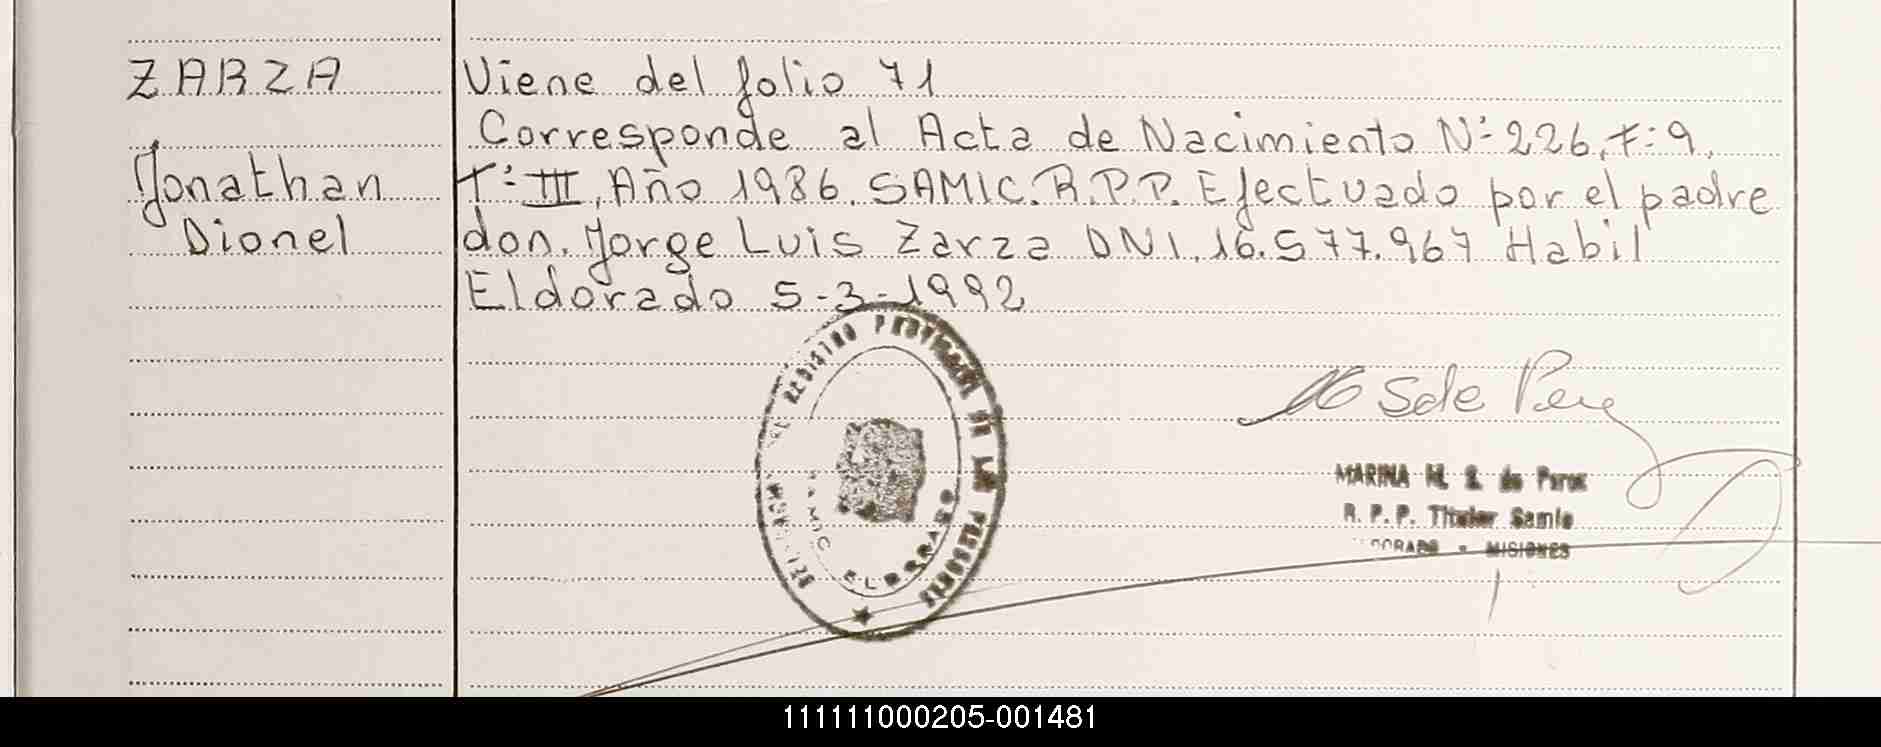 ZARZA
Jonathan
Dionel
Viene del folio 71
Corresponde al Acta de Nacimiento Nº 226, F: 9,
Tº III, Año 1986. SAMIC. R.P.P. Efectuado por el padre
don. Jorge Luis Zarza DNI. 16.577.967 Habil
Eldorado 5-3-1992
REGISTRO PROVINCIAL DE LAS PERSONAS
SAMIC ELDORADO
S de Perez
MARINA M. S. de Perez
R. P. P. Titular Samic
DORADO - MISIONES
111111000205-001481